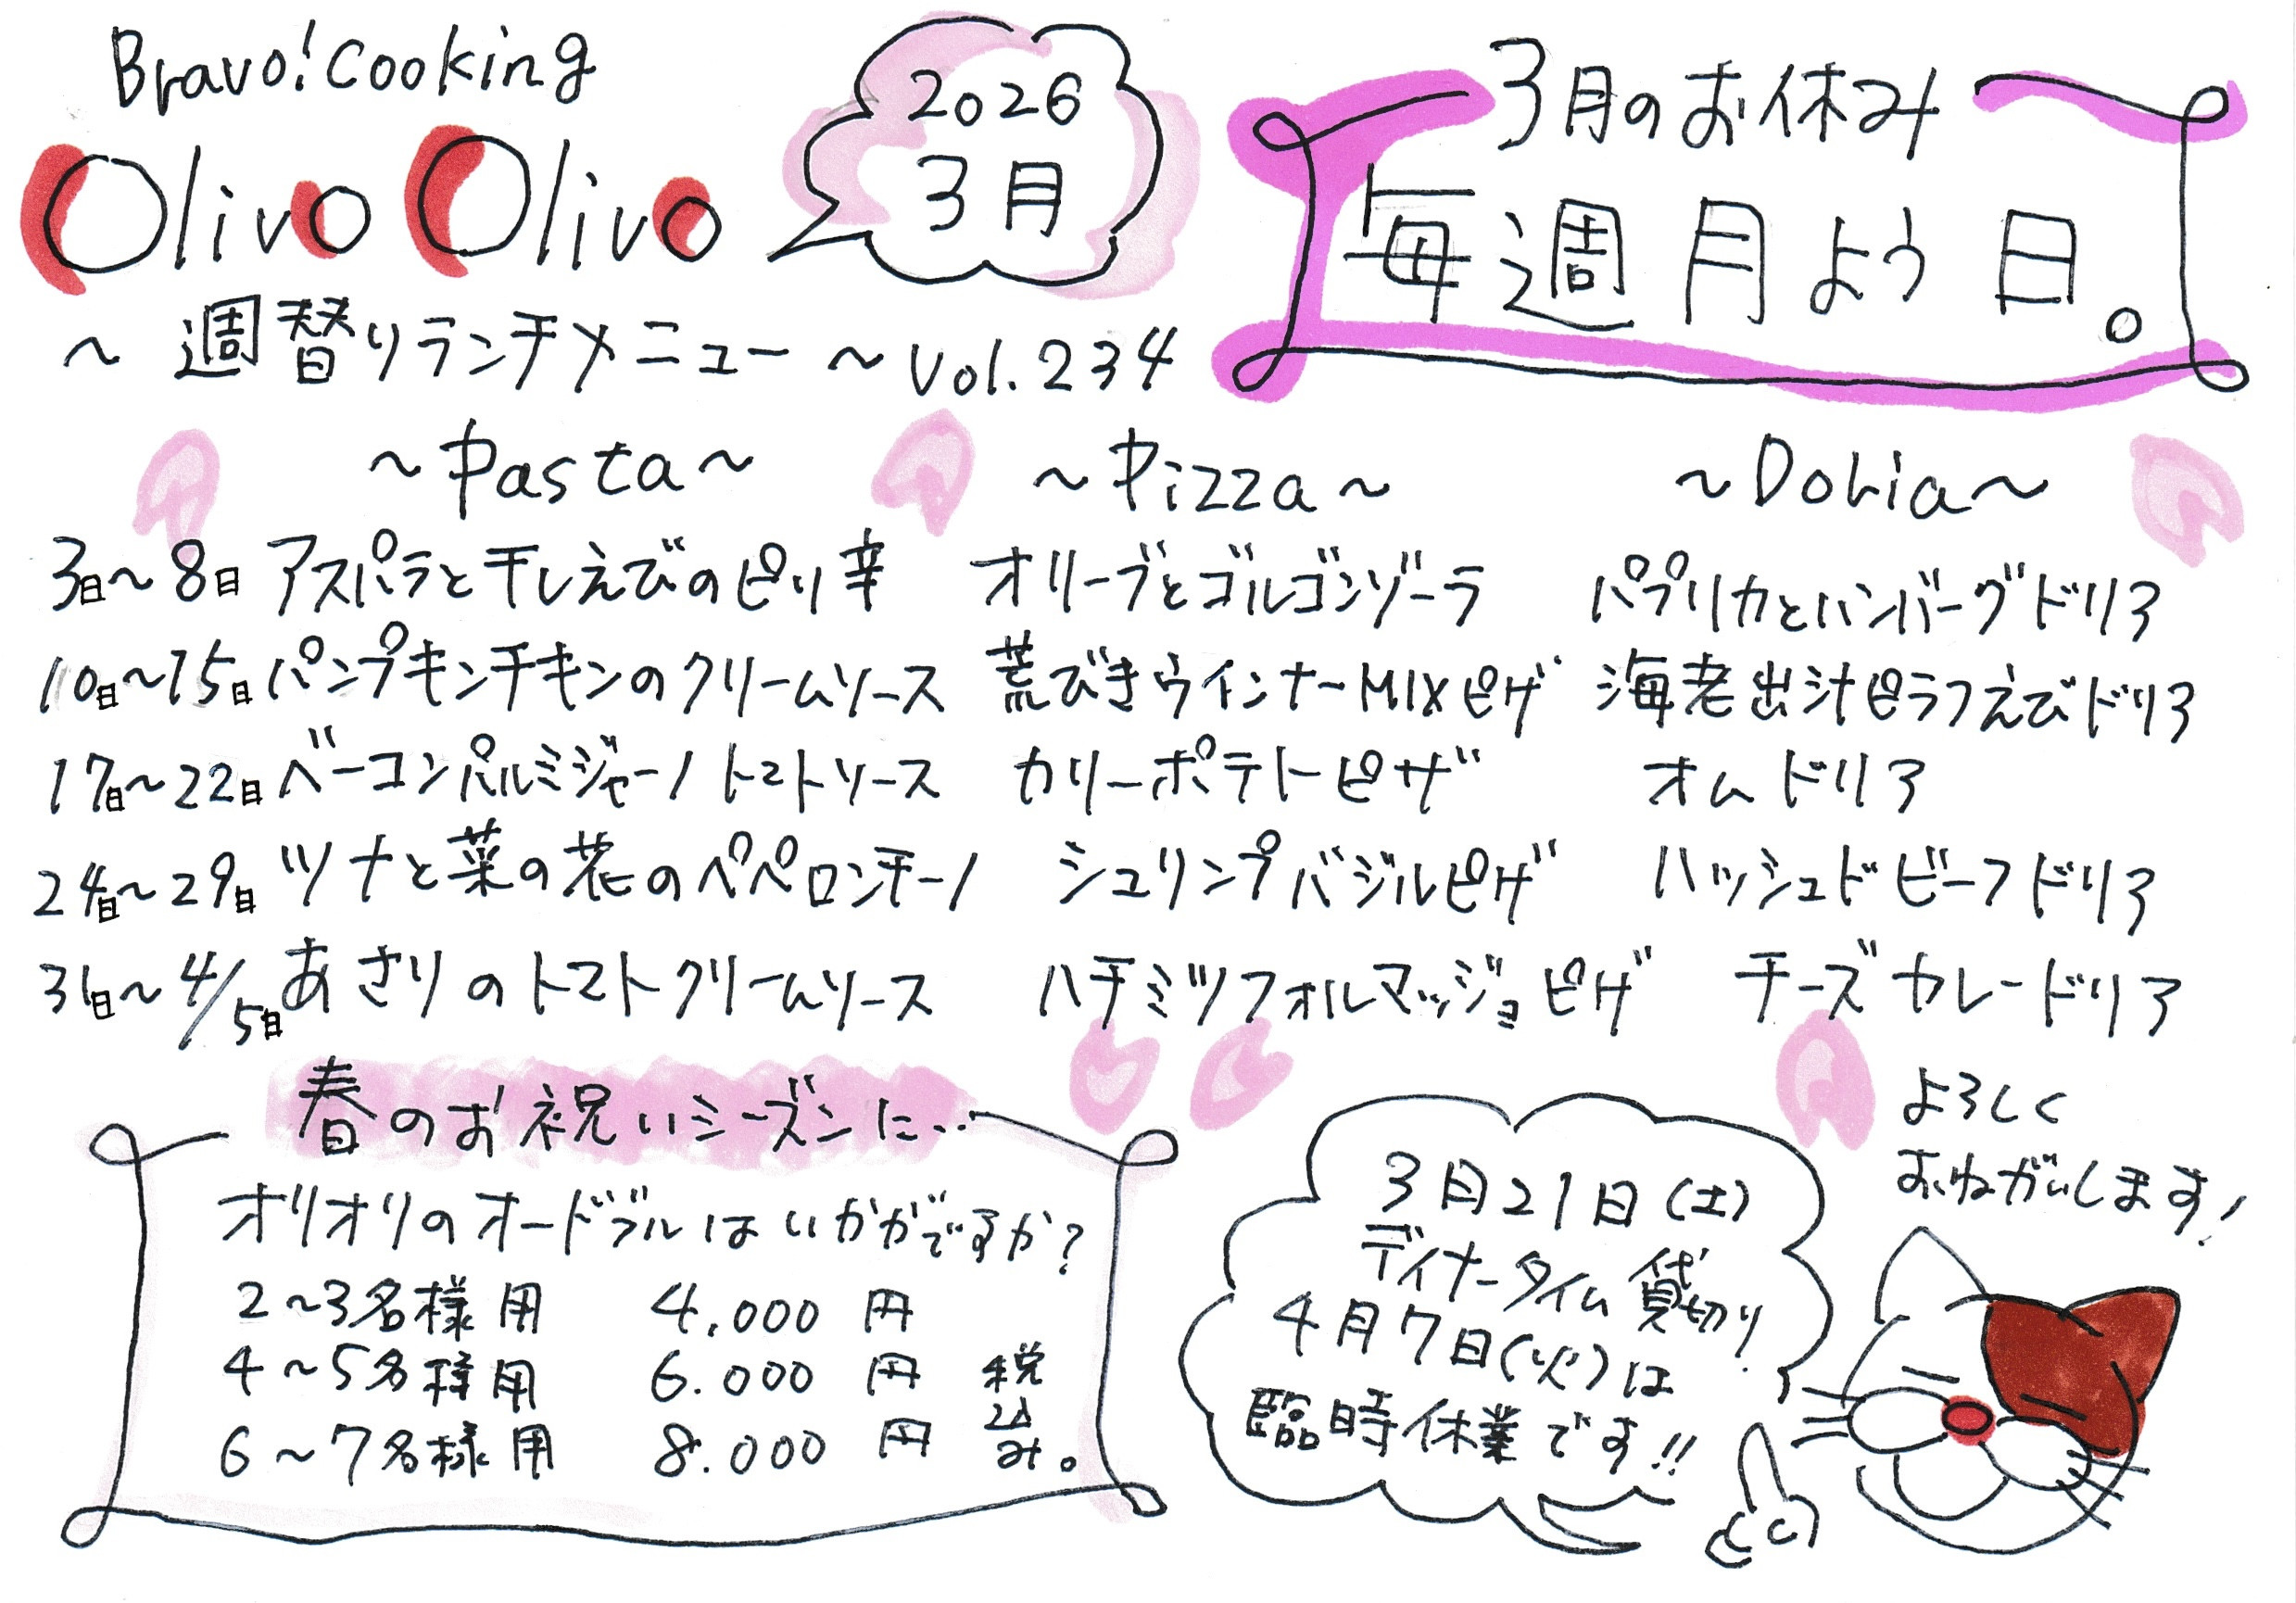 Bravo! Cooking
Olivo Olivo
2026
3月
〜週替りランチメニュー〜 Vol.234
3月のお休み
毎週月よう日。
〜Pasta〜
3日〜8日 アスパラと干しえびのピリ辛
10日〜15日 パンプキンチキンのクリームソース
17日〜22日 ベーコンパルミジャーノトマトソース
24日〜29日 ツナと菜の花のペペロンチーノ
31日〜4/5日 あさりのトマトクリームソース
〜Pizza〜
オリーブとゴルゴンゾーラ
荒びきウインナーMIXピザ
カリーポテトピザ
シュリンプバジルピザ
ハチミツフォルマッジョピザ
〜Doria〜
パプリカとハンバーグドリア
海老出汁ピラフえびドリア
オムドリア
ハッシュドビーフドリア
チーズカレードリア
春のお祝いシーズンに..
オリオリのオードブルはいかがですか?
2〜3名様用 4,000円
4〜5名様用 6.000円
6〜7名様用 8.000円
税込み。
3月21日(土)
ディナータイム貸切り!
4月7日(火)は
臨時休業です!!
よろしく
おねがいします!